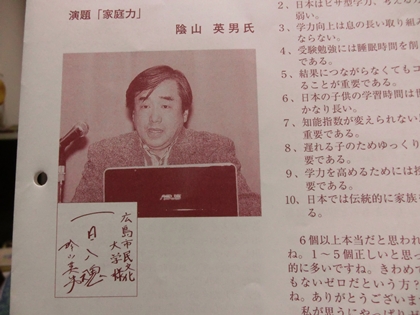 演題「家庭力」
陰山 英男氏
広島市民文化
大学様
2、日本はピサ型学力、考える力
弱い。
3、学力向上は息の長い取り組み
ならない。
4、受験勉強には睡眠時間を削
である。
5、結果につながらなくてもコ
ることが重要である。
6、日本の子供の学習時間は世
かなり長い。
7、知能指数が変えられない
重要である。
8、遅れる子のためゆっくり
要である。
9、学力を高めるためには授
要である。
10、日本では伝統的に家族を
る。
6個以上本当だと思われ
ね。1～5個正しいと思っ
的に多いですね。きわめて
もないゼロだという方？
ね。ありがとうございま